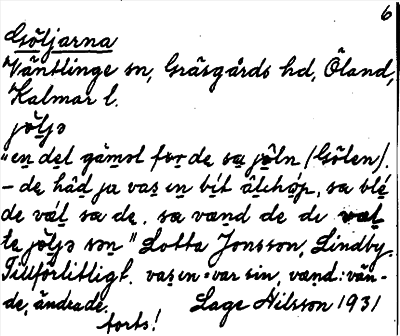 6
Göljarna
Väntlinge sn, Gräsgårds hd, Öland,
Kalmar l.
jöljə
"en del gämol for de sa jöln (Gölen).
– de håd ja vas en bit åtihop, sa blé
de väl sa de. sa vænd de de
te jöljə sən" Lotta Jonsson, Lindby.
Tillförlitligt. vas en = var sin, vænd: vän-
de, ändrade. Lage Nilsson 1931
forts!